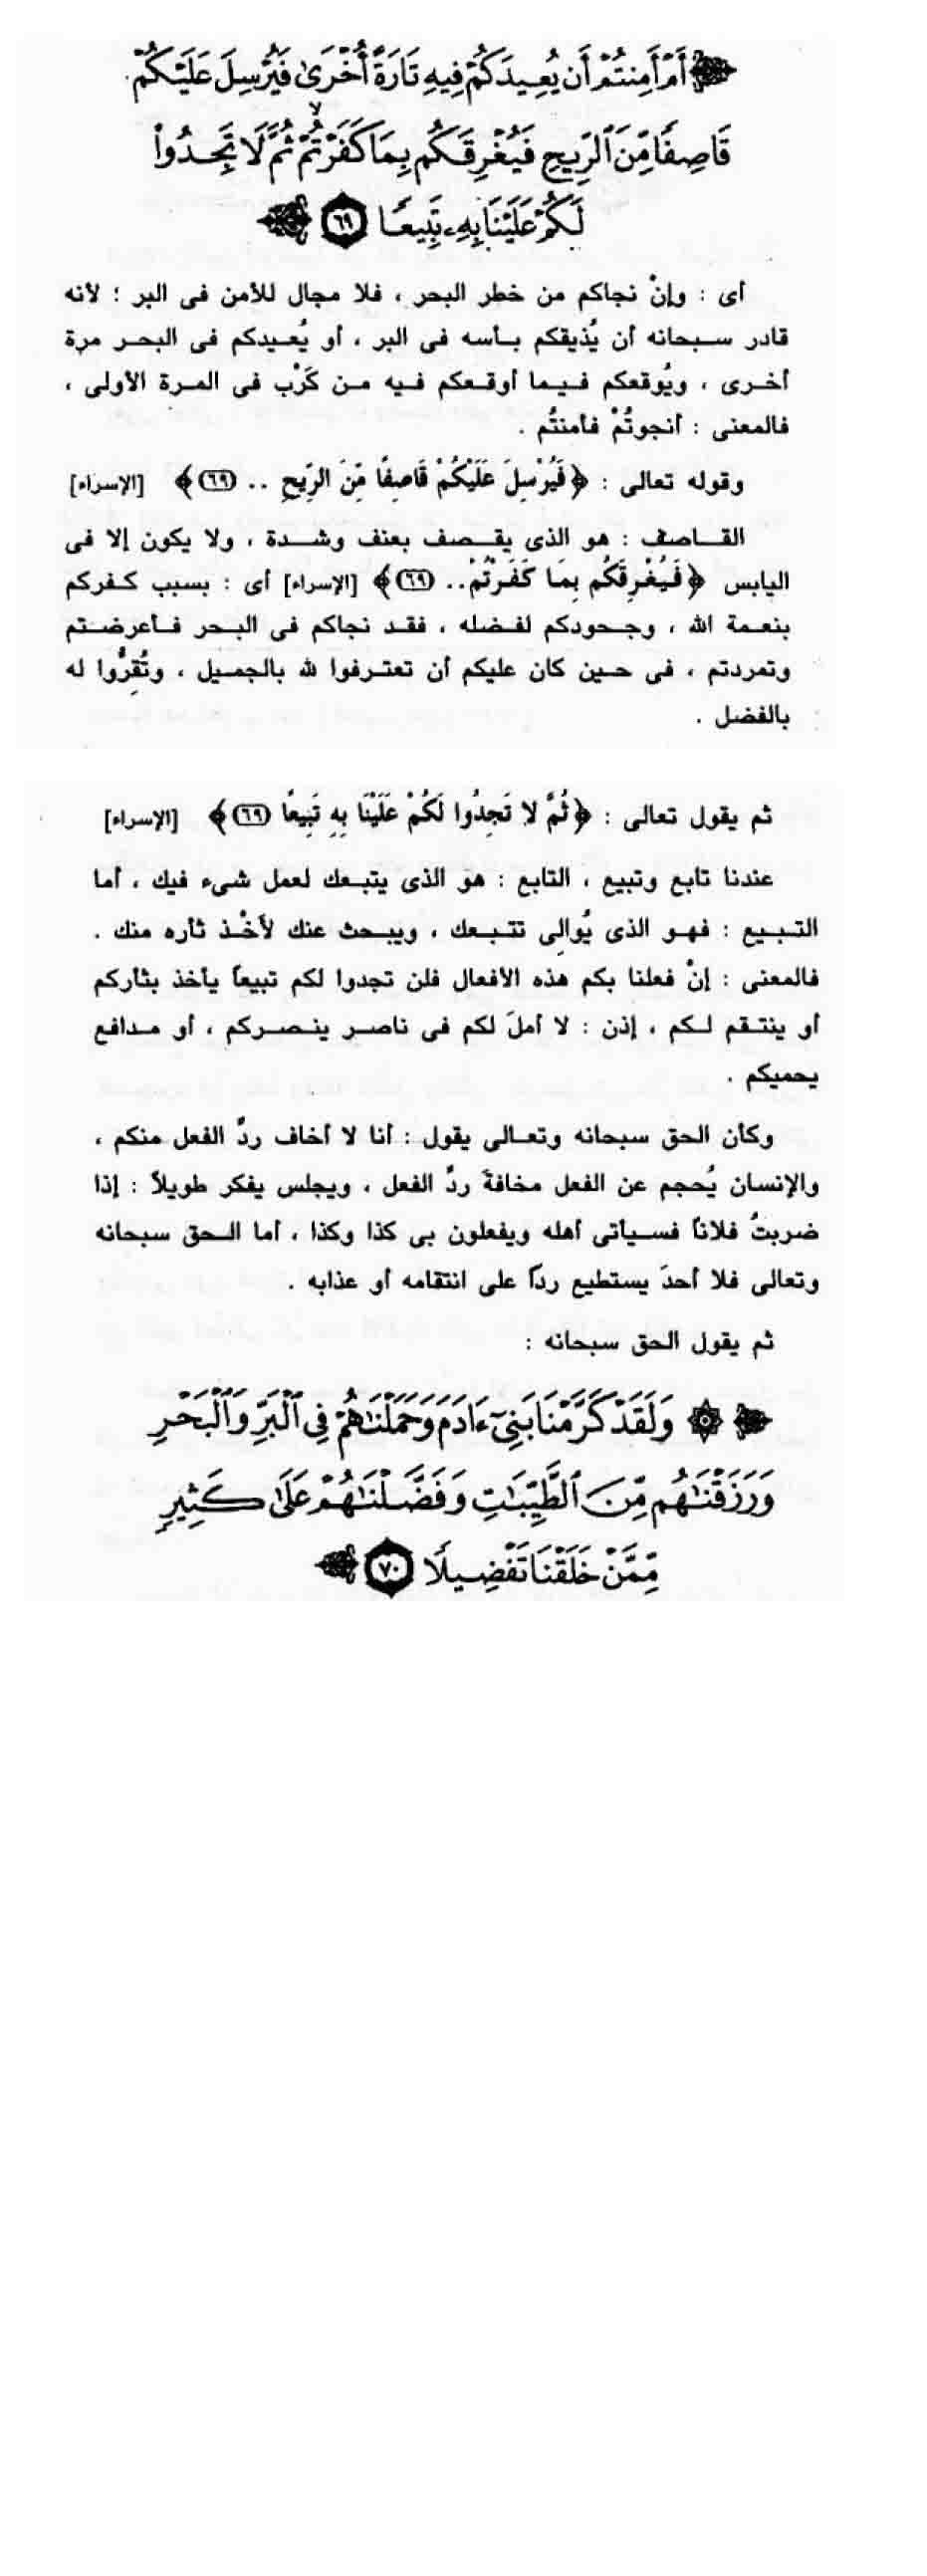 أَمْ أَمِنتُمْ أَن يُعِيدَكُمْ فِيهِ تَارَةً أُخْرَىٰ فَيُرْسِلَ عَلَيْكُمْ
قَاصِفًا مِّنَ ٱلرِّيحِ فَيُغْرِقَكُم بِمَا كَفَرْتُمْ ثُمَّ لَا تَجِدُوا۟
لَكُمْ عَلَيْنَا بِهِۦ تَبِيعًا ٦٩
أى : وإنْ نجاكم من خطر البحر ، فلا مجال للأمن فى البر ؛ لأنه
قادر سبحانه أن يُذيقكم بأسه فى البر ، أو يُعيدكم فى البحر مرة
أخرى ، ويُوقعكم فيما أوقعكم فيه من كَرْب فى المرة الأولى ،
فالمعنى : أنجوتُمْ فأمنتُم .
وقوله تعالى : ﴿ فَيُرْسِلَ عَلَيْكُمْ قَاصِفًا مِّنَ الرِّيحِ .. (٦٩) ﴾ [الإسراء]
القاصف : هو الذى يقصف بعنف وشدة ، ولا يكون إلا فى
اليابس ﴿ فَيُغْرِقَكُم بِمَا كَفَرْتُمْ .. (٦٩) ﴾ [الإسراء] أى : بسبب كفركم
بنعمة الله ، وجحودكم لفضله ، فقد نجاكم فى البحر فأعرضتم
وتمردتم ، فى حين كان عليكم أن تعترفوا لله بالجميل ، وتُقِرُّوا له
بالفضل .
ثم يقول تعالى : ﴿ ثُمَّ لا تَجِدُوا لَكُمْ عَلَيْنَا بِهِ تَبِيعًا (٦٩) ﴾ [الإسراء]
عندنا تابع وتبيع ، التابع : هو الذى يتبعك لعمل شىء فيك ، أما
التبيع : فهو الذى يُوالِى تتبعك ، ويبحث عنك لأخْذ ثأره منك .
فالمعنى : إنْ فعلنا بكم هذه الأفعال فلن تجدوا لكم تبيعاً يأخذ بثأركم
أو ينتقم لكم ، إذن : لا أملَ لكم فى ناصر ينصركم ، أو مدافع
يحميكم .
وكأن الحق سبحانه وتعالى يقول : أنا لا أخاف ردَّ الفعل منكم ،
والإنسان يُحجم عن الفعل مخافةَ ردِّ الفعل ، ويجلس يفكر طويلاً : إذا
ضربتُ فلاناً فسيأتى أهله ويفعلون بى كذا وكذا ، أما الحق سبحانه
وتعالى فلا أحدَ يستطيع رداً على انتقامه أو عذابه .
ثم يقول الحق سبحانه :
۞ وَلَقَدْ كَرَّمْنَا بَنِىٓ ءَادَمَ وَحَمَلْنَٰهُمْ فِى ٱلْبَرِّ وَٱلْبَحْرِ
وَرَزَقْنَٰهُم مِّنَ ٱلطَّيِّبَٰتِ وَفَضَّلْنَٰهُمْ عَلَىٰ كَثِيرٍ
مِّمَّنْ خَلَقْنَا تَفْضِيلًا ٧٠